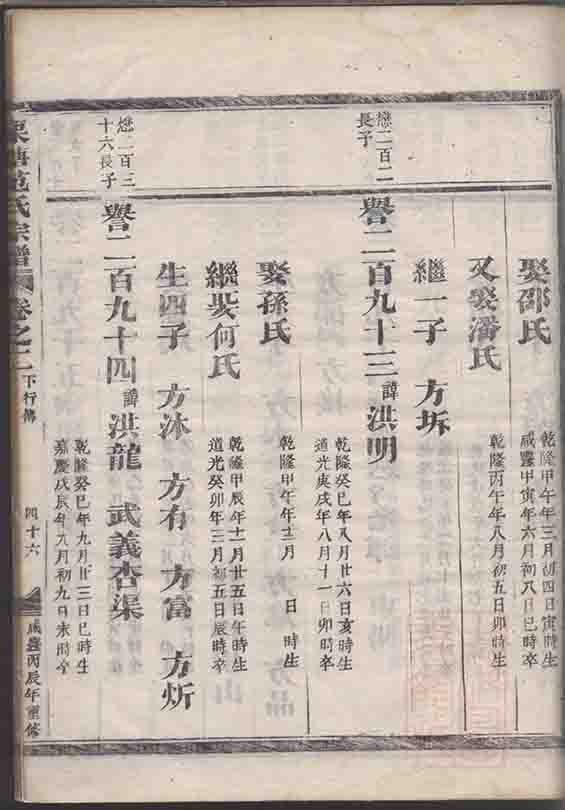 娶邵氏
乾隆甲午年三月初四日寅時生
咸豐甲寅年六月初八日巳時卒
又娶潘氏
乾隆丙午年八月初五日卯時生
繼一子 方坼
懋二百二
長子
譽二百九十三 諱 洪明
乾隆癸巳年八月廿六日亥時生
道光庚戌年八月十一日卯時卒
娶孫氏
乾隆甲午年十二月 日 時生
繼娶何氏
乾隆甲辰年十一月廿五日午時生
道光癸卯年三月初五日辰時卒
生四子 方沐 方有 方富 方炘
懋二百三
十六長子
譽二百九十四 諱 洪龍 武義杏渠
乾隆癸巳年九月廿三日巳時生
嘉慶戊辰年九月初九日未時卒
范氏宗譜 卷之二 下行傳 四十六 咸豐丙辰年重修